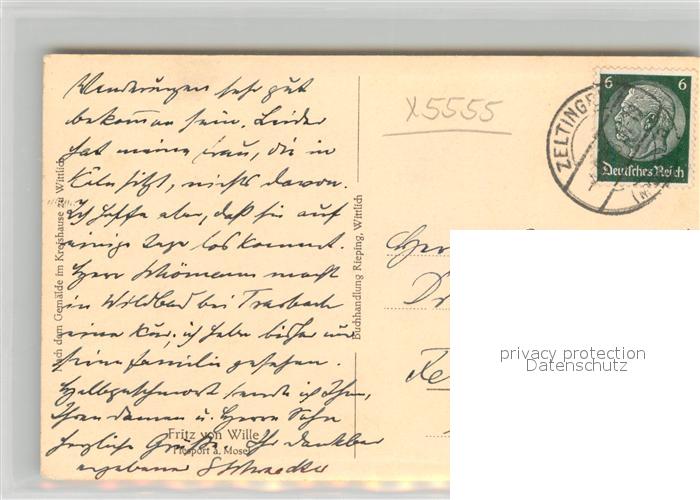 Wanderungen sehr gut
bekommen sein. Leider
hat meine Frau, die in
Köln sitzt, nichts davon.
Ich hoffe aber, daß sie auf
einige Tage loskommt.
Herr Schömann macht
in Wildbad bei Trarbach
eine Kur. ich habe bisher nur
seine Familie gesehen.
sende ich Ihnen,
Ihren Damen u. Herrn Sohn
herzliche Grüße. Ihr dankbar
ergebener
Nach dem Gemälde im Kreishause zu Wittlich
Fritz von Wille
Piesport a. Mosel
Buchhandlung Rieping, Wittlich
X5555
ZELTINGE
6 6
Deutsches Reich
Herr
Dr
privacy protection
Datenschutz